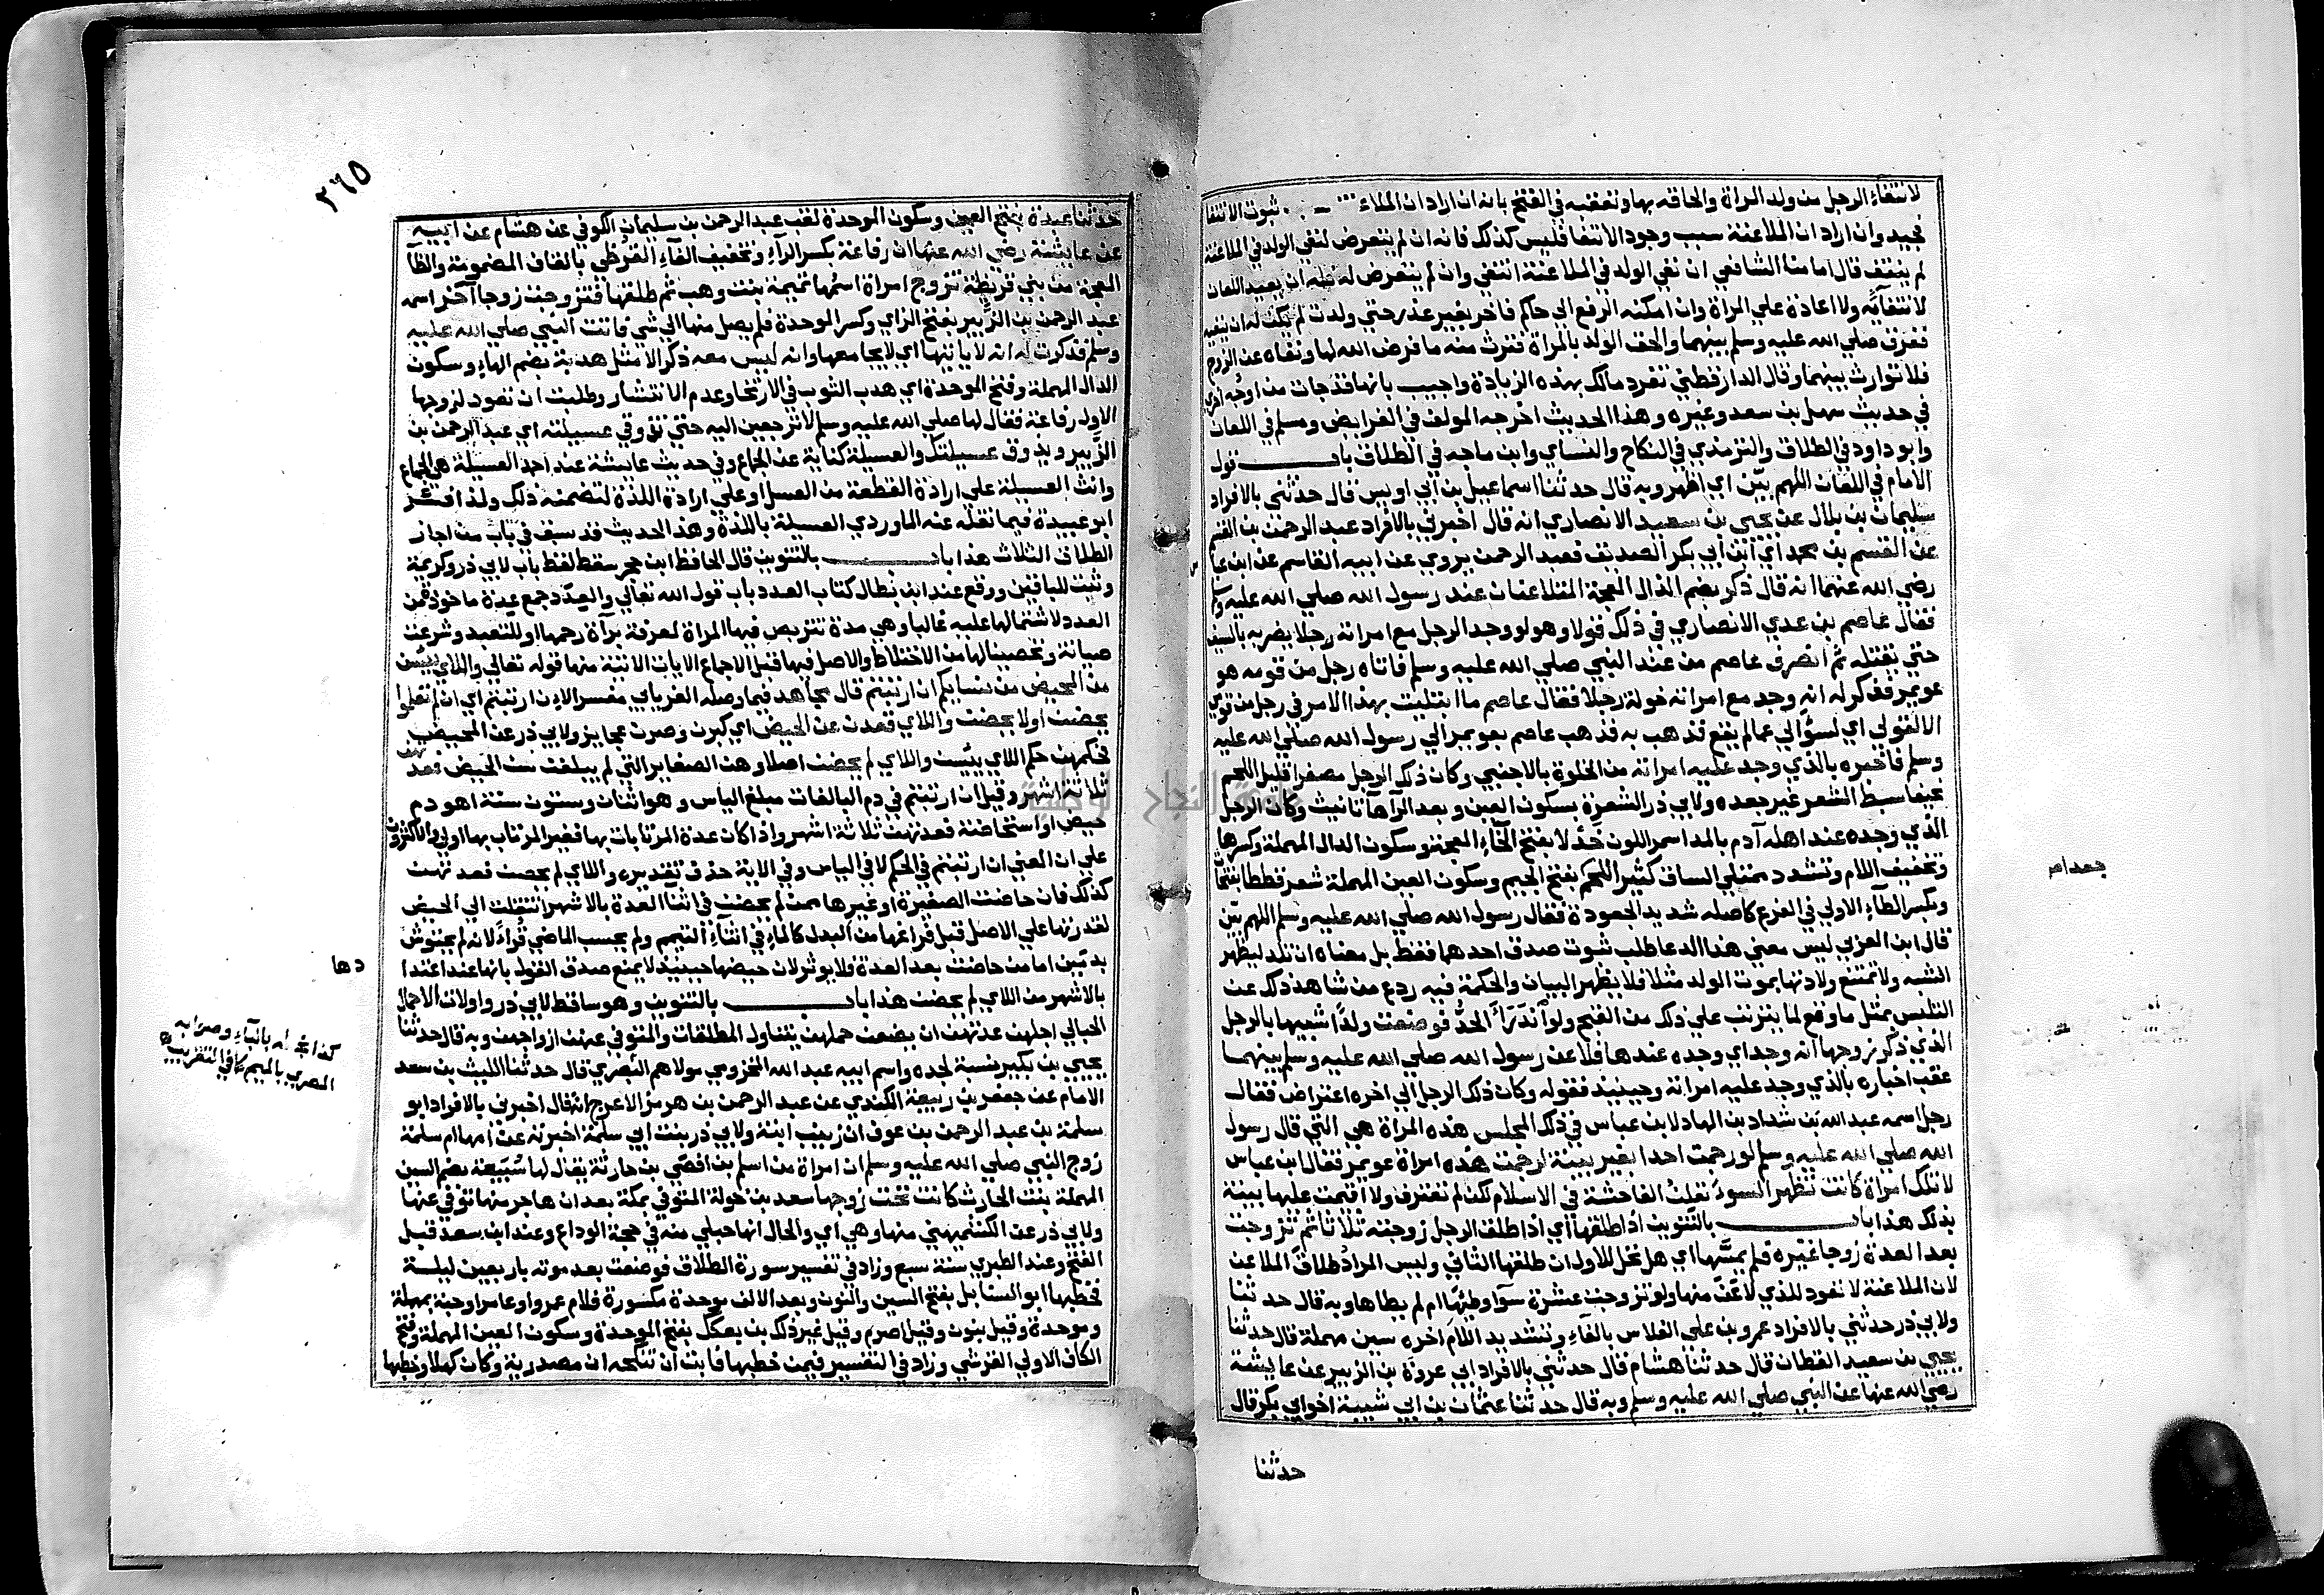 لانتفاء الرجل من ولد المراة والحاقه بها وتعقبه في الفتح بانه ان اراد ان الملاعنة ثبوت الانتفا
فجيد وان اراد ان الملاعنة سبب وجود الانتفا فليس كذلك فانه ان لم يتعرض لنفي الولد في الملاعنة
لم ينتف قال امامنا الشافعي ان نفي الولد في الملاعنة انتفي وان لم يتعرض له فله ان يعيد اللعان
لانتفايه ولا اعادة علي المراة وان امكنه الرفع الي حاكم فاخر بغير عذر حتي ولدت لم يكن له ان ينفيه
ففرق صلي الله عليه وسلم بينهما والحق الولد بالمراة فترث منه ما فرض الله لها ونفاه عن الزوج
فلا توارث بينهما وقال الدارقطني تفرد مالك بهذه الزيادة واجيب بانها قد جات من اوجه اخري
في حديث سهل بن سعد وغيره وهذا الحديث اخرجه المولف في الفرايض ومسلم في اللعان
وابو داود في الطلاق والترمذي في النكاح والنساي وابن ماجه في الطلاق باب قول
الامام في اللعان اللهم بيّن اي اظهر وبه قال حدثنا اسماعيل بن ابي اويس قال حدثني بالافراد
سليمان بن بلال عن يحيي بن سعيد الانصاري انه قال اخبرني بالافراد عبد الرحمن بن القسم
عن القسم بن محمد اي ابن ابي بكر الصديق فعبد الرحمن يروي عن ابيه القاسم عن ابن عبا
رضي الله عنهما انه قال ذكر بضم الذال المعجمة المتلاعنان عند رسول الله صلي الله عليه وسلم
فقال عاصم بن عدي الانصاري في ذلك قولا وهو لو وجد الرجل مع امراته رجلا يضربه بالسيف
حتي يقتله ثم انصرف عاصم من عند النبي صلي الله عليه وسلم فاتاه رجل من قومه هو
عويمر فذكر له انه وجد مع امراته خولة رجلا فقال عاصم ما ابتليت بهذا الامر في رجل من قومي
الا لقولي اي لسؤالي عما لم يقع فذهب به فذهب عاصم بعويمر الي رسول الله صلي الله عليه
وسلم فاخبره بالذي وجد عليه امراته من الخلوة بالاجنبي وكان ذلك الرجل مصفرا قليل اللحم
نحيفا سبط الشعر غير جعده ولابي ذر الشعرة بسكون العين وبعد الرآ هآ تانيث وكان الرجل
الذي وجده عند اهله آدم بالمد اسمر اللون خدلا بفتح الخآء المعجمة وسكون الدال المهملة وكسرها
وتخفيف اللام وتشدد ممتلي الساق كثير اللحم بفتح الجيم وسكون العين المهملة شعر قططا بفتحها
وبكسر الطآء الاولي في الفرع كاصله شديد الجعودة فقال رسول الله صلي الله عليه وسلم اللهم بيّن
قال ابن العربي ليس معني هذا الدعا طلب ثبوت صدق احدهما فقط بل معناه ان تلد ليظهر
الشبه ولا تمتنع ولادتها بموت الولد مثلا فلا يظهر البيان والحكمة فيه ردع من شاهد ذلك عن
التلبس بمثل ما وقع لما يترتب علي ذلك من القبح ولو اندرأ الحدّ فوضعت ولدا شبيها بالرجل
الذي ذكر زوجها انه وجد اي وجده عندها فلاعن رسول الله صلي الله عليه وسلم بينهما
عقب اخباره بالذي وجد عليه امراته وحينيذ فقوله وكان ذلك الرجل الي اخره اعتراض فقال
رجل اسمه عبد الله بن شداد بن الهاد لابن عباس في ذلك المجلس هذه المراة هي التي قال رسول
الله صلي الله عليه وسلم لو رجمت احدا بغير بينة لرجمت هذه امراة عويمر فقال ابن عباس
لا تلك امراة كانت تظهر السوء تعلن الفاحشة في الاسلام لكن لم تعترف ولا اقيمت عليها بينة
بذلك هذا باب بالتنوين اذا طلقها اي اذا طلق الرجل زوجته ثلاثا ثم تزوجت
بعد العدة زوجا غيره فلم يمسّها اي هل تحل للاول ان طلقها الثاني وليس المراد طلاق الملاعن
لان الملاعنة لا تعود للذي لاعن منها ولو تزوجت عشرة سوآ وطئها ام لم يطاها وبه قال حدثنا
ولابي ذر حدثني بالافراد عمرو بن علي الفلاس بالفآء وتشديد اللام اخره سين مهملة قال حدثنا
يحيي بن سعيد القطان قال حدثنا هشام قال حدثني بالافراد ابي عروة بن الزبير عن عايشة
رضي الله عنها عن النبي صلي الله عليه وسلم وبه قال حدثنا عثمان بن ابي شيبة اخو ابي بكر قال
حدثنا
٢٦٥
حدثنا عبدة بفتح العين وسكون الموحدة لقب عبد الرحمن بن سليمان الكوفي عن هشام عن ابيه
عن عايشة رضي الله عنها ان رفاعة بكسر الراء وتخفيف الفآء القرظي بالقاف المضمومة والظآ
المعجمة من بني قريظة تزوج امراة اسمها تميمة بنت وهب ثم طلقها فتزوجت زوجا آخر اسمه
عبد الرحمن بن الزبير بفتح الزاي وكسر الموحدة فلم يصل منها الي شي فاتت النبي صلي الله عليه
وسلم فذكرت له انه لا ياتيها اي لا يجامعها وانه ليس معه ذكر الا مثل هدبة بضم الهاء وسكون
الدال المهملة وفتح الموحدة اي هدب الثوب في الارتخا وعدم الانتشار وطلبت ان تعود لزوجها
الاول رفاعة فقال لها صلي الله عليه وسلم لا ترجعين اليه حتي تذوقي عسيلته اي عبد الرحمن بن
الزّبير ويذوق عسيلتك والعسيلة كناية عن الجماع وفي حديث عايشة عند احمد العسيلة هي الجماع
وانث العسيلة علي ارادة القطعة من العسل او علي ارادة اللذة لتضمنه ذلك ولذا فسّر
ابو عبيدة فيما نقله عنه الماوردي العسيلة باللذة وهذا الحديث قد سبق في باب من اجاز
الطلاق الثلاث هذا باب بالتنوين قال الحافظ ابن حجر سقط لفظ باب لابي ذر وكريمة
وثبت للباقين ووقع عند ابن بطال كتاب العدد باب قول الله تعالي والعدد جمع عدة ماخوذ من
العدد لاشتمالها عليه غالبا وهي مدة تتربص فيها المراة لمعرفة برآة رحمها او للتعبد وشرعت
صيانة وتحصينا لها من الاختلاط والاصل فيها قبل الاجماع الايات الاتية منها قوله تعالي واللاي يئسن
من المحيض من نسايكم ان ارتبتم قال مجاهد فيما وصله الفريابي مفسرا لان ارتبتم اي ان لم تعلموا
يحضن او لا يحضن واللاي قعدن عن الحيض اي كبرن وصرن عجايز ولابي ذر عن المحيض
فحكمهن حكم اللاي يئسن واللاي لم يحضن اصلا وهن الصغاير التي لم يبلغن سن الحيض فعد
تهن
ثلاثة اشهر وقيل ان ارتبتم في دم البالغات مبلغ الياس وهو اثنان وستون سنة اهو دم
حيض او استحاضة فعدتهن ثلاثة اشهر واذا كان عدة المرتابات بها فغير المرتاب بها اولي والاكثرون
علي ان المعني ان ارتبتم في الحكم لا في الياس وفي الاية حذف تقديره واللاي لم يحضن فعدتهن
كذلك فان حاضت الصغيرة او غيرها ممن لم يحضن في اثنآ العدة بالاشهر انتقلت الي الحيض
لقدرتها علي الاصل قبل فراغها من البدل كالماء في اثنآء التيمم ولم يحسب الماضي قرأ لانه لم يحتوش
بدمين اما من حاضت بعد العدة فلا يوثر لان حيضها حينيذ لا يمنع صدق القول بانها عند اعتدا
دها
بالاشهر من اللاي لم يحضن هذا باب بالتنوين وهو ساقط لابي ذر واولات الاحمال
الحبالي اجلهن عدتهن ان يضعن حملهن يتناول المطلقات والمتوفي عنهن ازواجهن وبه قال حدثنا
يحيي بن بكير نسبة لجده واسم ابيه عبد الله المخزومي مولاهم البصري قال حدثنا الليث بن سعد
الامام عن جعفر بن ربيعة الكندي عن عبد الرحمن بن هرمز الاعرج انه قال اخبرني بالافراد ابو
سلمة بن عبد الرحمن بن عوف ان زينب ابنة ولابي ذر بنت ابي سلمة اخبرته عن امها ام سلمة
زوج النبي صلي الله عليه وسلم ان امراة من اسلم بن افصي بن حارثة يقال لها سُبَيعة بضم السين
المهملة بنت الحارث كانت تحت زوجها سعد بن خولة المتوفي بمكة بعد ان هاجر منها توفي عنها
ولابي ذر عن الكشميهني منها وهي اي والحال انها حبلي منه في حجة الوداع وعند ابن سعد قبل
الفتح وعند الطبري سنة سبع وزاد في تفسير سورة الطلاق فوضعت بعد موته باربعين ليلة
فخطبها ابو السنابل بفتح السين والنون وبعد الالف موحدة مكسورة فلام عمرو او عامر او حبة بمهملة
وموحدة وقيل بنون وقيل اصرم وقيل غير ذلك بن بعكك بفتح الموحدة وسكون العين المهملة وفتح
الكاف الاولي القرشي وزاد في التفسير فيمن خطبها فابت ان تنكحه ان مصدرية وكان كهلا وخطبها
كذا بخطه بالبآء وصوابه
المصري بالميم كما في التقريب